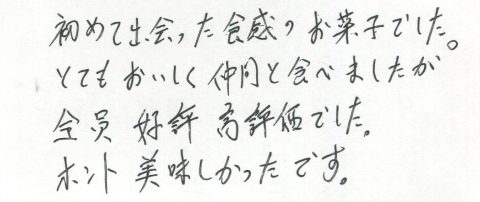 初めて出会った食感のお菓子でした。
とてもおいしく仲間と食べましたが
全員 好評 高評価でした。
ホント 美味しかったです。